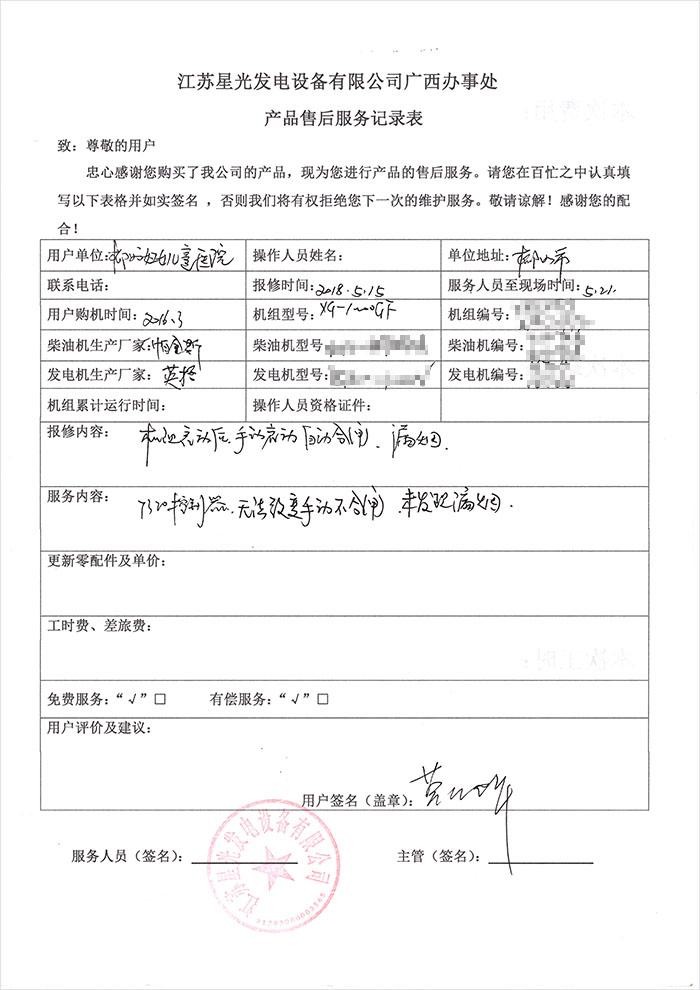 江苏星光发电设备有限公司广西办事处
产品售后服务记录表
致：尊敬的用户
忠心感谢您购买了我公司的产品，现为您进行产品的售后服务。请您在百忙之中认真填
写以下表格并如实签名 ，否则我们将有权拒绝您下一次的维护服务。敬请谅解！感谢您的配
合！
用户单位：柳州妇幼儿童医院 操作人员姓名： 单位地址：柳州市
联系电话： 报修时间：2018.5.15 服务人员至现场时间：5.21.
用户购机时间：2016.3 机组型号：XG-1000GF 机组编号：
柴油机生产厂家： 柴油机型号： 柴油机编号：
发电机生产厂家：英格 发电机型号： 发电机编号：
机组累计运行时间： 操作人员资格证件：
报修内容： 机组启动后,手动启动自动合闸、漏烟.
服务内容： 7320控制器,无法改变手动不合闸 未发现漏烟.
更新零配件及单价：
工时费、差旅费：
免费服务：“√”□ 有偿服务：“√”□
用户评价及建议：
用户签名（盖章）：
服务人员（签名）： 主管（签名）：
江苏星光发电设备有限公司